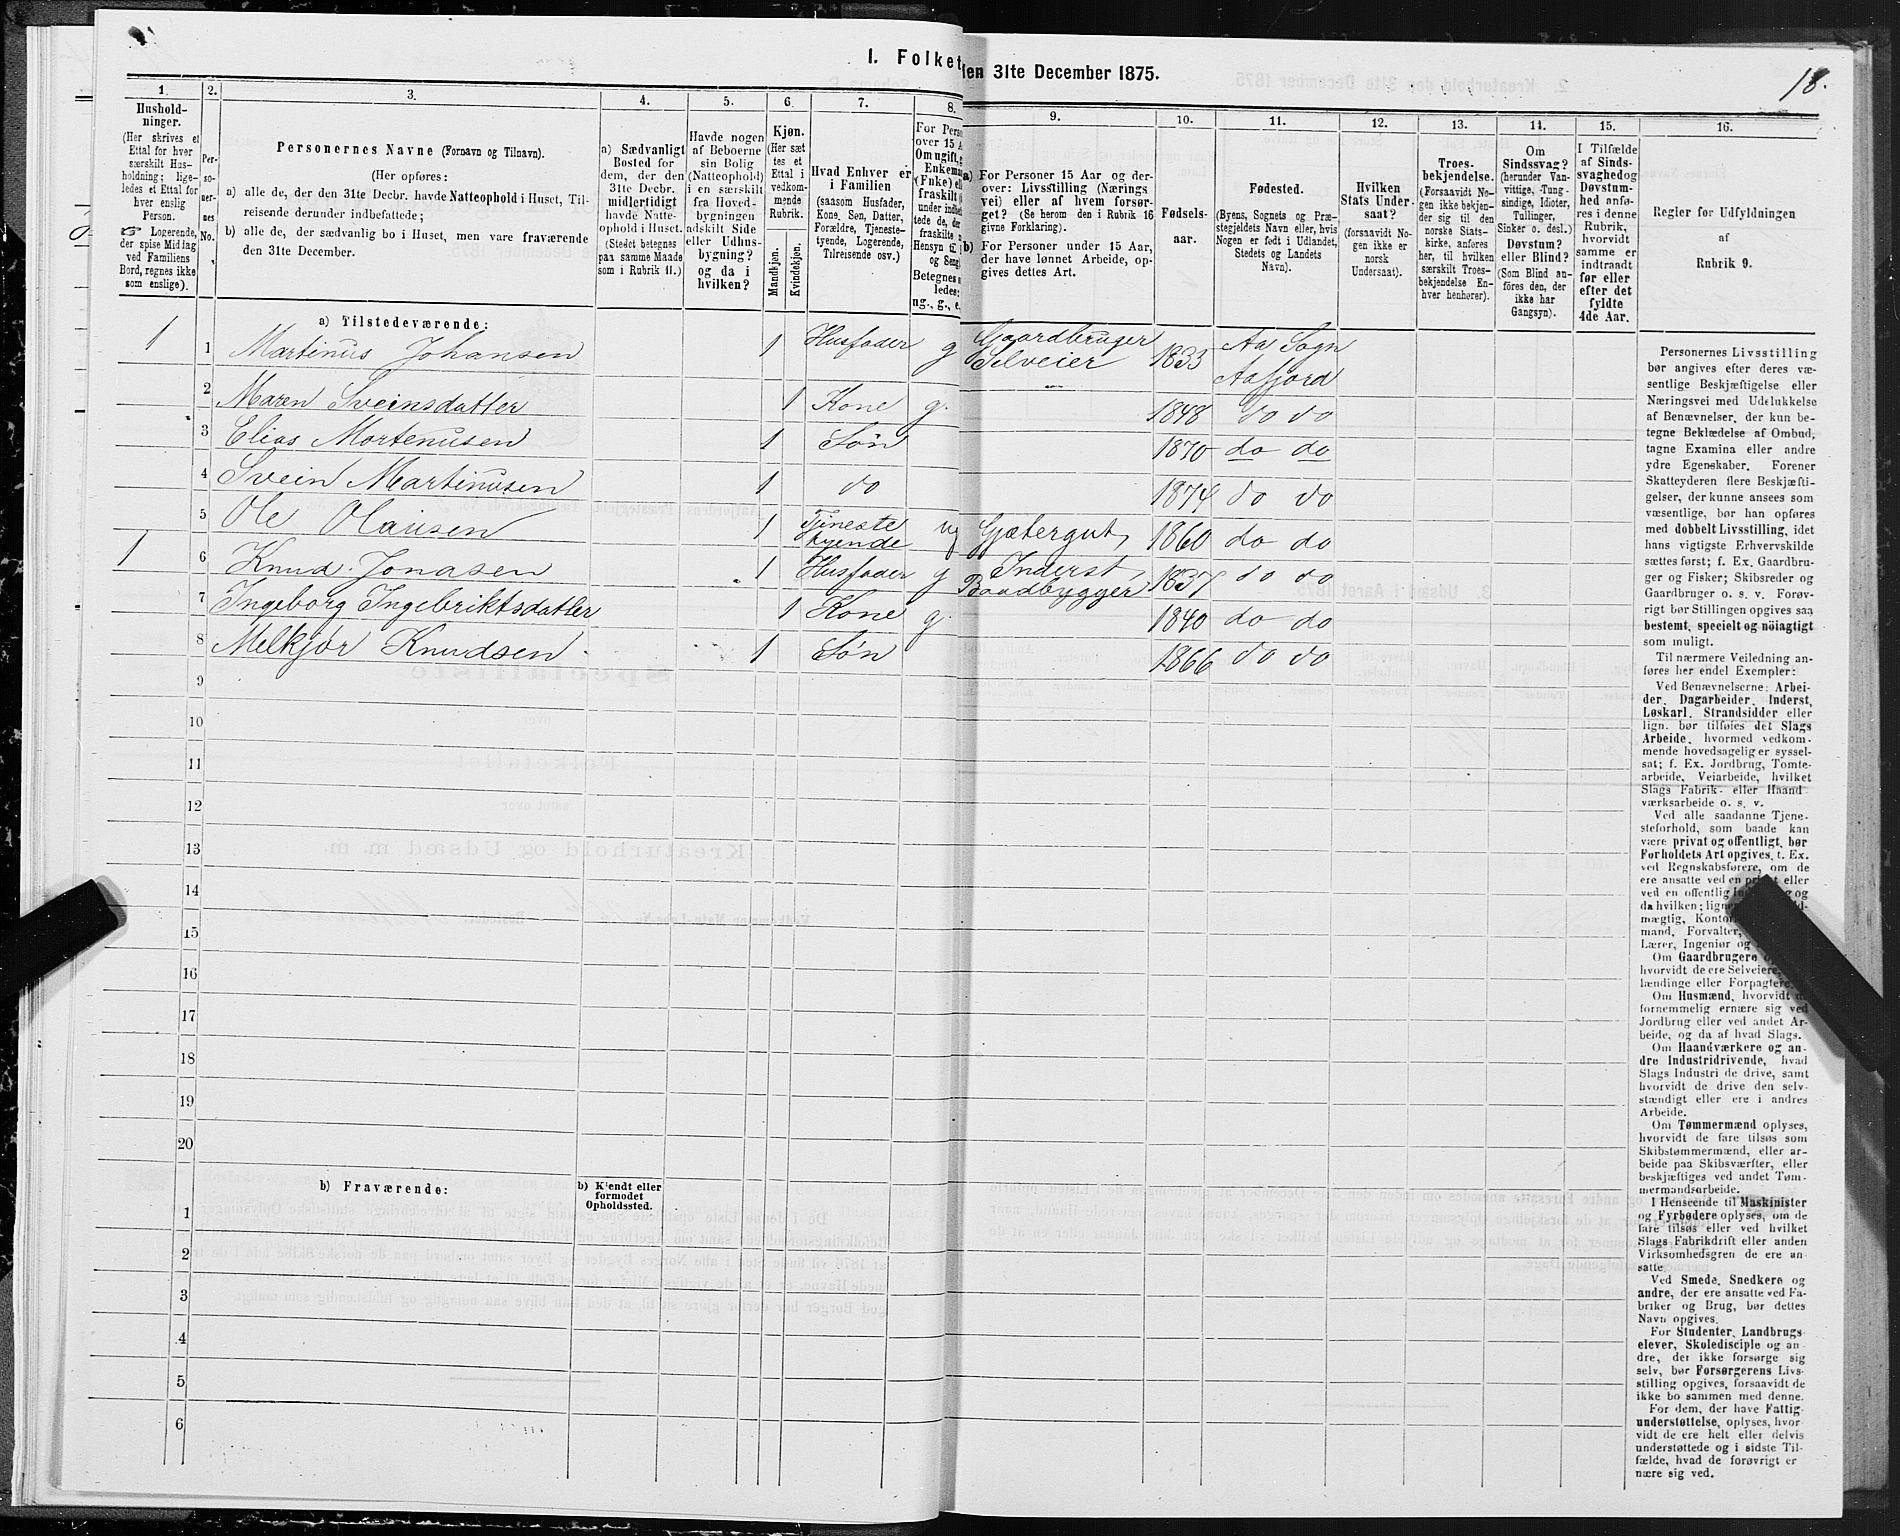 I. Folket
den 31te December 1875.
18.
1.
Hushold-
ninger.
(Her skrives et
Ettal for hver
særskilt Hus-
holdning; lige-
ledes et Ettal for
hver enslig
Person.
☞ Logerende,
der spise Middag
ved Familiens
Bord, regnes ikke
som enslige).
2.
Per-
so-
ner-
nes
No.
3.
Personernes Navne (Fornavn og Tilnavn).
(Her opføres:
a) alle de, der den 31te Decbr. havde Natteophold i Huset, Til-
reisende derunder indbefattede;
b) alle de, der sædvanlig bo i Huset, men vare fraværende
den 31te December.
4.
a) Sædvanligt
Bosted for
dem, der den
31te Decbr.
midlertidigt
havde Natte-
ophold i Huset.
(Stedet betegnes
paa samme Maade
som i Rubrik 11.)
5.
Havde nogen
af Beboerne
sin Bolig
(Natteophold)
i en særskilt
fra Hoved-
bygningen
adskilt Side
eller Udhus-
bygning?
og da i
hvilken?
6.
Kjøn.
(Her sæt
tes et
Ettal i
vedkom-
mende
Rubrik.
Mandkjøn.
Kvindekjøn.
7.
Hvad Enhver er
i Familien
(saasom Husfader,
Kone, Søn, Datter,
Forældre, Tjeneste-
tyende, Logerende,
Tilreisende osv.)
8.
For Perso
over 15 A
Om ugift, g
Enkema
(Enke) el
fraskilt
under indbe
tede de, der
fraskilte
Hensyn til
og Seng
Betegnes s
ledes:
ug., g., e.
9.
a) For Personer 15 Aar og der-
over: Livsstilling (Nærings
vei) eller af hvem forsør-
get? (Se herom den i Rubrik 16
givne Forklaring).
b) For Personer under 15 Aar,
der have lønnet Arbeide, op-
gives dettes Art.
10.
Fødsels-
aar.
11.
Fødested.
(Byens, Sognets og Præ-
stegjeldets Navn eller, hvis
Nogen er født i Udlandet,
Stedets og Landets
Navn).
12.
Hvilken
Stats Under-
saat?
(forsaavidt No-
gen ikke er
norsk
Undersaat).
13.
Troes-
bekjendelse.
(Forsaavidt No-
gen ikke bekjen-
der sig til den
norske Stats-
kirke, anføres
her, til hvilken
særskilt Troes-
bekjendelse En-
hver henhører).
14.
Om
Sindssvag?
(herunder Van-
vittige, Tung-
sindige, Idioter,
Tullinger,
Sinker o. desl.)
Døvstum?
eller Blind?
(Som Blind an-
føres den, der
ikke har
Gangsyn).
15.
I Tilfælde
af Sinds-
svaghed og
Døvstum-
hed anfø-
res i denne
Rubrik,
hvorvidt
samme er
indtraadt
før eller
efter det
fyldte
4de Aar.
16.
Regler før Udfyldningen
af
Rubrik 9.
a) Tilstedeværende:
1 1 Martinus Johansen 1 Husfader g Gaardbruger Selveier 1833 Aa Sogn Aafjord
2 Maren Sveinsdatter 1 Kone g. 1848 do do
3 Elias Mortenusen 1 Søn 1870 do do
4 Svein Martinusen 1 do 1874 do do
5 Ole Olausen 1 Tjeneste tyende ug Gjætergut, 1860 do do
1 6 Knud Jonasen 1 Husfader g Inderst, Baadbygger 1837 do do
7 Ingeborg Ingebriktsdatter 1 Kone g. 1840 do do
8 Melkjor Knudsen 1 Søn 1866 do do
9
10
11
12
13
14
15
16
17
18
19
20
b) Fraværende:
b) Kjendt eller
formodet
Opholdssted.
1
2
3
4
5
6
Personernes Livsstilling
bør angives efter deres væ-
sentlige Beskjæftigelse eller
Næringsvei med Udelukkelse
af Benævnelser, der kun be-
tegne Beklædelse af Ombud,
tagne Examina eller andre
ydre Egenskaber. Forener
Skatteyderen flere Beskjæfti-
gelser, der kunne ansees som
væsentlige, bør han opføres
med dobbelt Livsstilling, idet
hans vigtigste Erhvervskilde
sættes først; f. Ex. Gaardbru-
ger og Fisker; Skibsreder og
Gaardbruger o. s. v. Forøv-
rigt bør Stillingen opgives saa
bestemt, specielt og nöiagtigt
som muligt.
Til nærmere Veiledning an-
føres her endel Exempler:
Ved Benævnelserne: Arbei-
der, Dagarbeider, Inderst,
Løskarl, Strandsidder eller
lign. bør tilføies det Slags
Arbeide, hvormed vedkom-
mende hovedsagelig er syssel-
sat; f. Ex. Jordbrug, Tomte-
arbeide, Veiarbeide, hvilket
Slags Fabrik- eller Haand
værksarbeide o. s. v.
Ved alle saadanne Tjene-
steforhold, som baade kan
være privat og offentligt, bør
Forholdets Art opgives, t. Ex.
ved Regnskabsførere, om de
ere ansatte ved en privat eller
ved en offentlig og
da hvilken;
mægtig, Kontor
mand, Forvalter,
Lærer, Ingeniør og
Om Gaardbrugere
hvorvidt de ere Selveiere,
lændinge eller Forpagtere.
Om Husmænd, hvorvidt
fornemmelig ernære sig ved
Jordbrug eller ved andet Ar-
beide, og da af hvad Slags.
Om Haandværkere og an-
dre Industridrivende, hvad
Slags Industri de drive, samt
hvorvidt de drive den selv-
stændigt eller ere i andres
Arbeide.
Om Tømmermænd oplyses,
hvorvidt de fare tilsøs som
Skibstømmermænd, eller ar-
beide paa Skibsværfter, eller
beskjæftiges ved andet Tøm-
mermandsarbeide.
I Henseende til Maskinister
og Fyrbødere oplyses, om de
fare tilsøs eller ved hvilket
Slags Fabrikdrift eller anden
Virksomhedsgren de ere an-
satte.
Ved Smede, Snedkere og
andre, der ere ansatte ved Fa-
briker og Brug, bør dettes
Navn opgives.
For Studenter, Landbrugs
elever, Skoledisciple og an-
dre, der ikke forsørge sig
selv, bør Forsørgerens Livs-
stilling opgives, forsaavidt de
ikke bo sammen med denne.
For dem, der have Fattig
understøttelse, oplyses, hvor-
vidt de ere helt eller delvis
understøttede og i sidste Til-
fælde, hvad de forøvrigt er
nære sig ved.